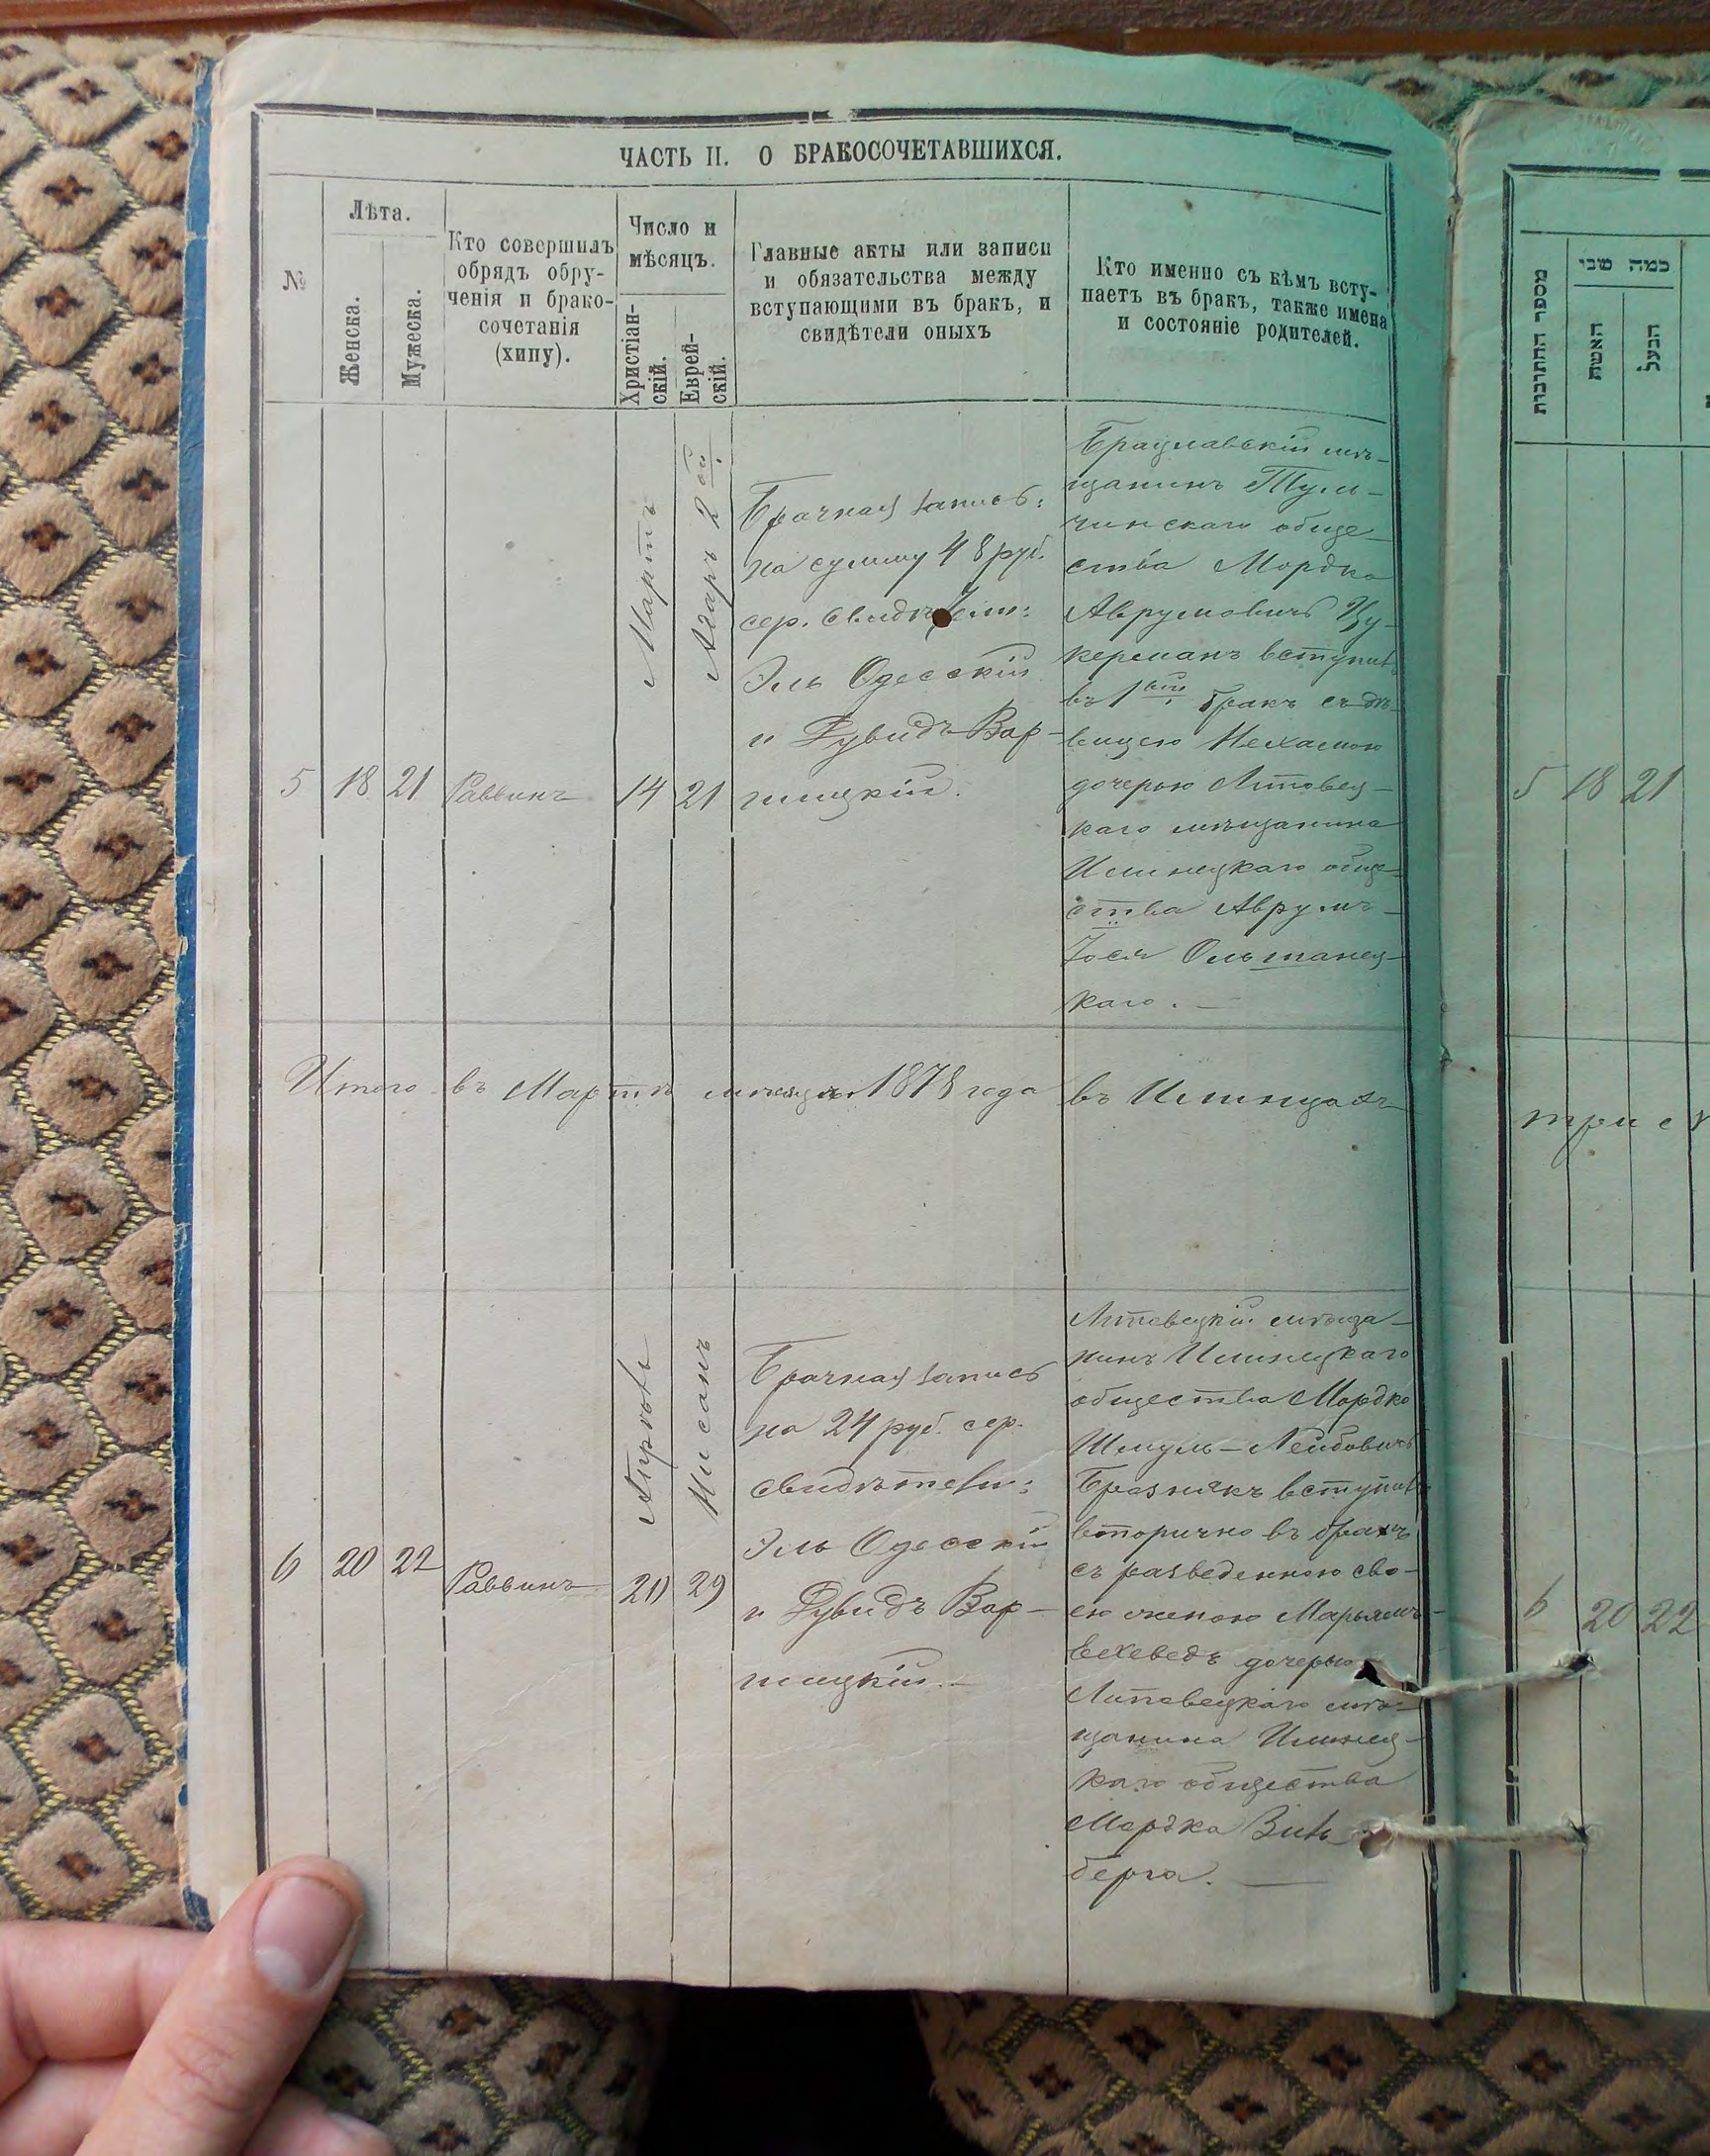 ЧАСТЬ II. О БРАКОСОЧЕТАВШИХСЯ.
№
Лѣта.
Женска.
Мужеска.
Кто совершилъ
обрядъ обру-
ченія и брако-
сочетанія
(хипу).
Число и
мѣсяцъ.
Христіан-
скій.
Еврей-
скій.
Главные акты или записи
и обязательства между
вступающими въ бракъ, и
свидѣтели оныхъ
Кто именно съ кѣмъ всту-
паетъ въ бракъ, также имена
и состояніе родителей.
5
18
21
Раввинъ
Мартъ
14
Адаръ 2ой
21
Брачная запись:
на сумму 48 руб.
сер. свидѣтели:
Эль Одесскій
и Дувидъ Вар-
шицкій.
Брацлавскій мѣ-
щанинъ Туль-
чинскаго обще-
ства Мордко
Аврумовичъ Цу-
керманъ вступилъ
въ 1вый бракъ съ дѣ-
вицею Нехамою
дочерью Липовец-
каго мѣщанина
Илинецкаго обще-
ства Аврумъ-
Іося Ольшанец-
каго.
Итого въ Мартѣ мѣсяцѣ 1878 года въ Илинцахъ
6
20
22
Раввинъ
Апрѣль
20
Нисанъ
29
Брачная запись
на 24 руб. сер.
свидѣтели:
Эль Одесскій
и Дувидъ Вар-
шицкій.
Липовецкій мѣща-
нинъ Илинецкаго
общества Мордко
Шмуль-Лейбовичъ
Брезнякъ вступилъ
вторично въ бракъ
съ разведенною сво-
ею женою Марьямъ-
Ехеведъ дочерью
Липовецкаго мѣ-
щанина Илинец-
каго общества
Мордка Виль-
берга.
מספר החתונות
כמה שני
האשה
הבעל
5 18 21
три с
6 20 22